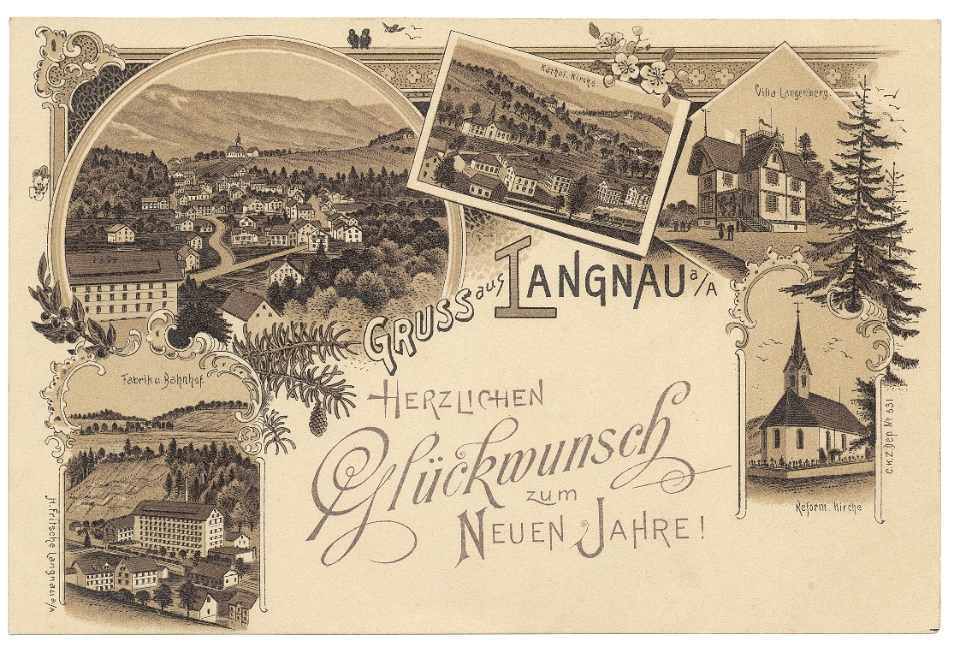 Kathol. Kirche.
Villa Langenberg.
1894
GRUSS aus LANGNAU a/A
Fabrik u. Bahnhof.
HERZLICHEN
Glückwunsch
zum
NEUEN JAHRE!
Reform. Kirche
C.K.Z. Dep. No 631
H. Fritsche Langnau a/A